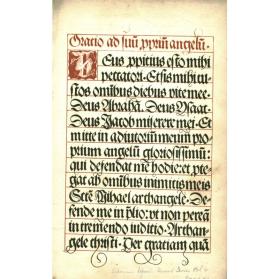 Oratio ad suũ ꝓpriũ angelũ.
Deus ꝓpitius esto mihi
peccatori. Et sis mihi cu-
stos omībus diebus vite mee.
Deus Abrahã. Deus Ysaac.
Deus Jacob miserere mei. Et
mitte in adiutoriũ meum ꝓ-
prium angelũ gloriosissimũ:
qui defendat me hodie: et ꝓte-
gat ab omībus inimicis meis
Scte Mihael archangele. De-
fende me in p̃lio: vt non pereã
in tremendo iuditio. Archan-
gele christi. Per gratiam quã